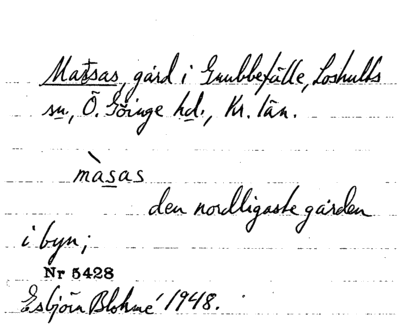 Matsas, gård i Gnubbefälle, Loshults
sn, Ö. Göinge hd., Kr. län.
màsas
den nordligaste gården
i byn;
Nr 5428
Esbjörn Blohmé 1948.